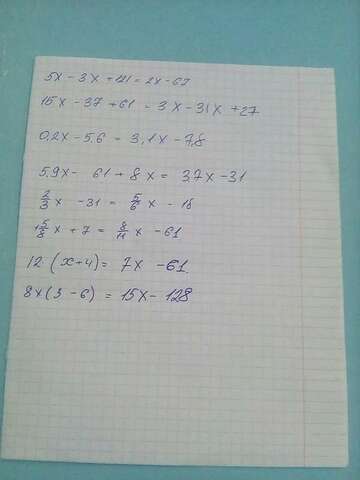 5x - 3x + 121 = 2x - 67
15x - 37 + 61 = 3x - 31x + 27
0,2x - 5.6 = 3,1x - 7,8
5.9x - 61 + 8x = 37x - 31
2/3 x - 31 = 5/6 x - 18
1 5/8 x + 7 = 8/11 x - 61
12 · (x + 4) = 7x - 61
8x (3 - 6) = 15x - 128